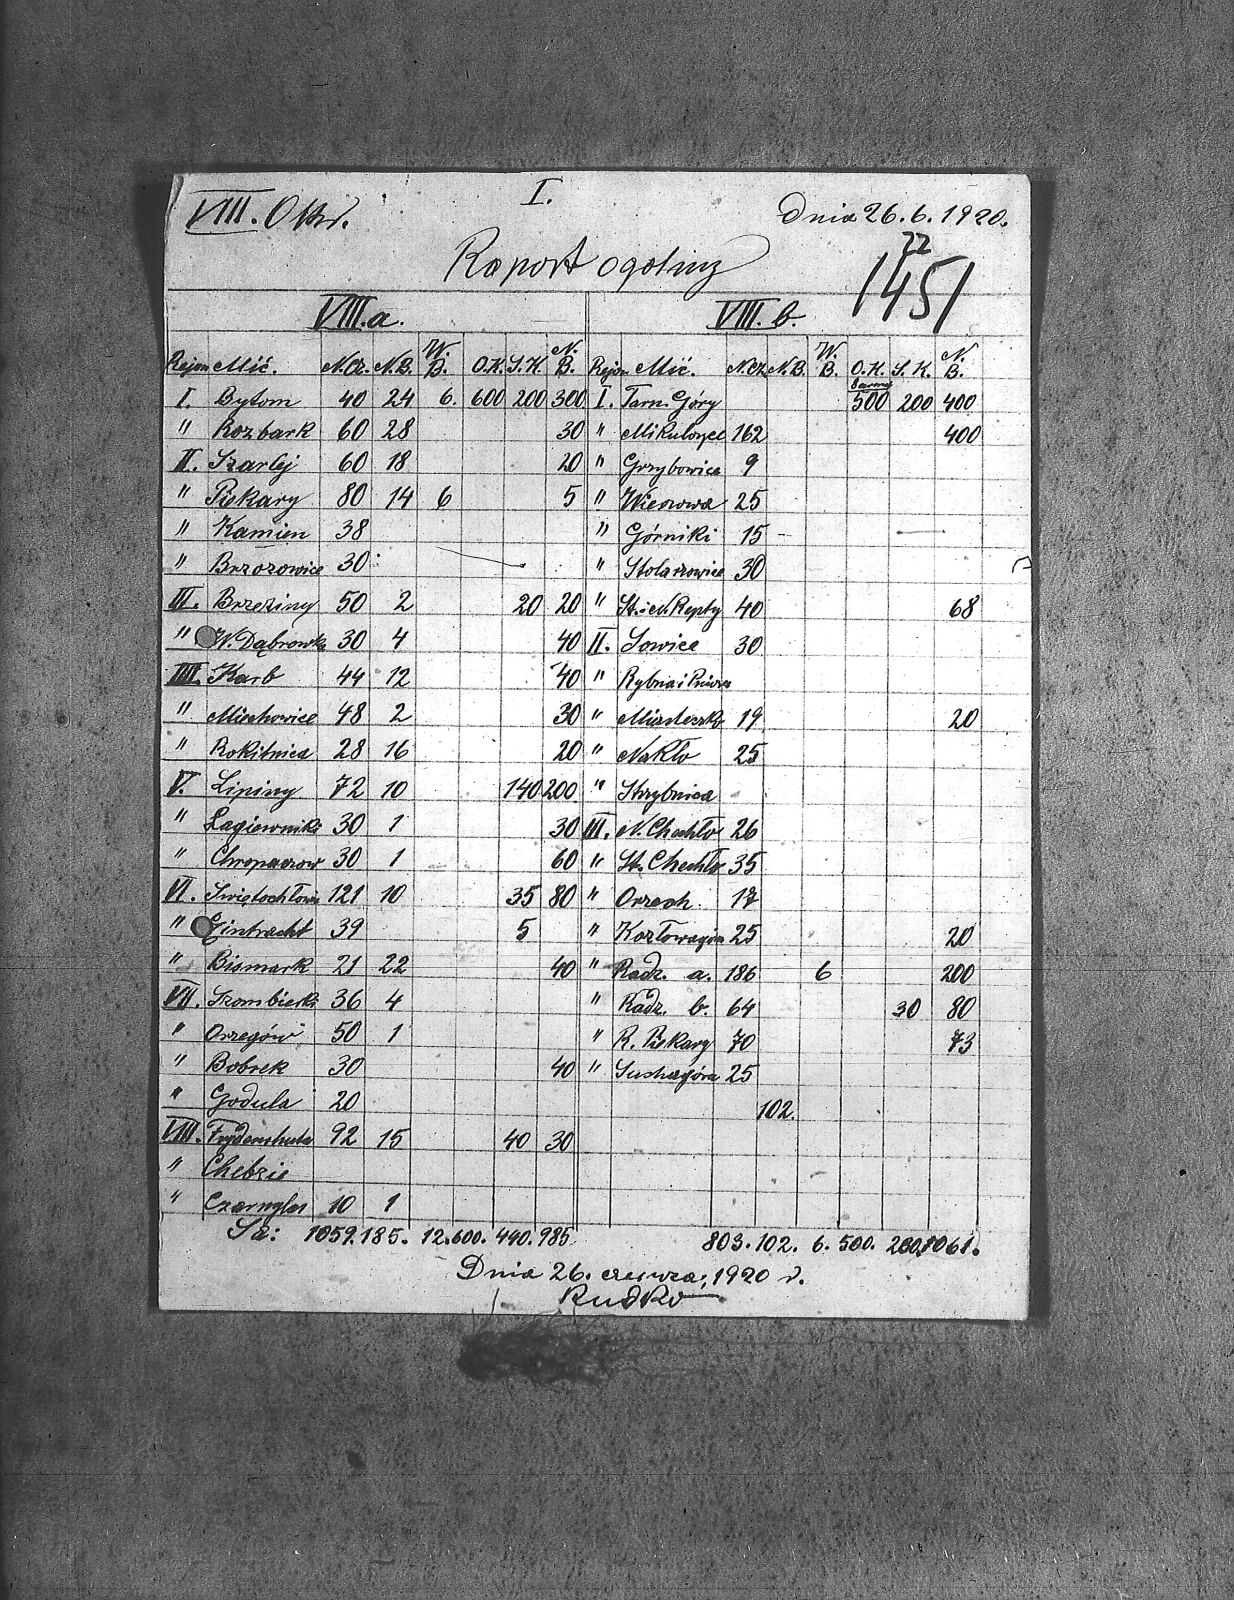 I.
VIII. Okr. Dnia 26.6.1920.
22
1451
Raport ogólny
VIII.a. VIII.b.
Rejon Mić. N.Cz. N.B. W.B. O.K. S.K. N.B. Rejon Mić. N.Cz. N.B. W.B. O.K. S.K. N.B.
I. Bytom 40 24 6. 600 200 300 I. Tarn. Góry 500 200 400
" Rozbark 60 28 30 " Mikulczyce 162 400
II. Szarlej 60 18 20 " Grzybowice 9
" Piekary 80 14 6 5 " Wieszowa 25
" Kamien 38 " Górniki 15 -
" Brzozowice 30 " Stolarzowice 30
III. Brzeziny 50 2 20 20 " St. i n. Repty 40 68
" W. Dąbrowka 30 4 40 II. Sowice 30
IIII. Karb 44 12 40 " Rybna i Pniowiec
" Miechowice 48 2 30 " Miasteczko 19 20
" Rokitnica 28 16 20 " Nakło 25
V. Lipiny 72 10 140 200 " Strzybnica
" Łagiewniki 30 1 30 III. N. Chechło 26
" Chropaczow 30 1 60 " St. Chechło 35
VI. Świętochłowice 121 10 35 80 " Orzech 17
" Eintracht 39 5 " Kozłowagóra 25 20
" Bismark 21 22 40 " Radz. a. 186 6 200
VII. Szombierki 36 4 " Radz. b. 64 30 80
" Orzegów 50 1 " R. Piekary 70 73
" Bobrek 30 40 " Suchagóra 25
" Godula 20 102.
VIII. Frydenshuta 92 15 40 30
" Chebzie
" Czarnylas 10 1
Sa: 1059. 185. 12. 600. 440. 985. 803. 102. 6. 500. 1061.
Dnia 26. czerwca, 1920 r.
Rudko